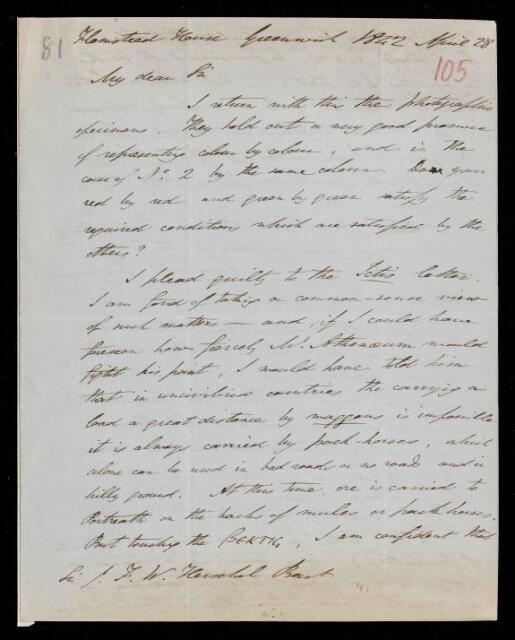 81
Flamstead House Greenwich 1842 April 28
105
My dear Sir
I return with this the photographic
specimens. They hold out a very good promise
of representing colour by colour, and in the
case of No. 2 by the same colour. Does your
red by red and green by green satisfy the
required conditions which are satisfied by the
others?
I plead guilty to the Ictis letter.
I am fond of taking a common-sense view
of such matters — and, if I could have
foreseen how fiercely Mr. Athenæum would
fight his point, I would have told him
that in uncivilized countries the carrying a
load a great distance by waggons is impossible
it is always carried by pack-horses, which
alone can be used in bad roads or no roads and in
hilly ground. At this time ore is carried to
Portreath on the backs of mules or pack horses.
But touching the I am confident that
Sir J. F. W. Herschel Bart